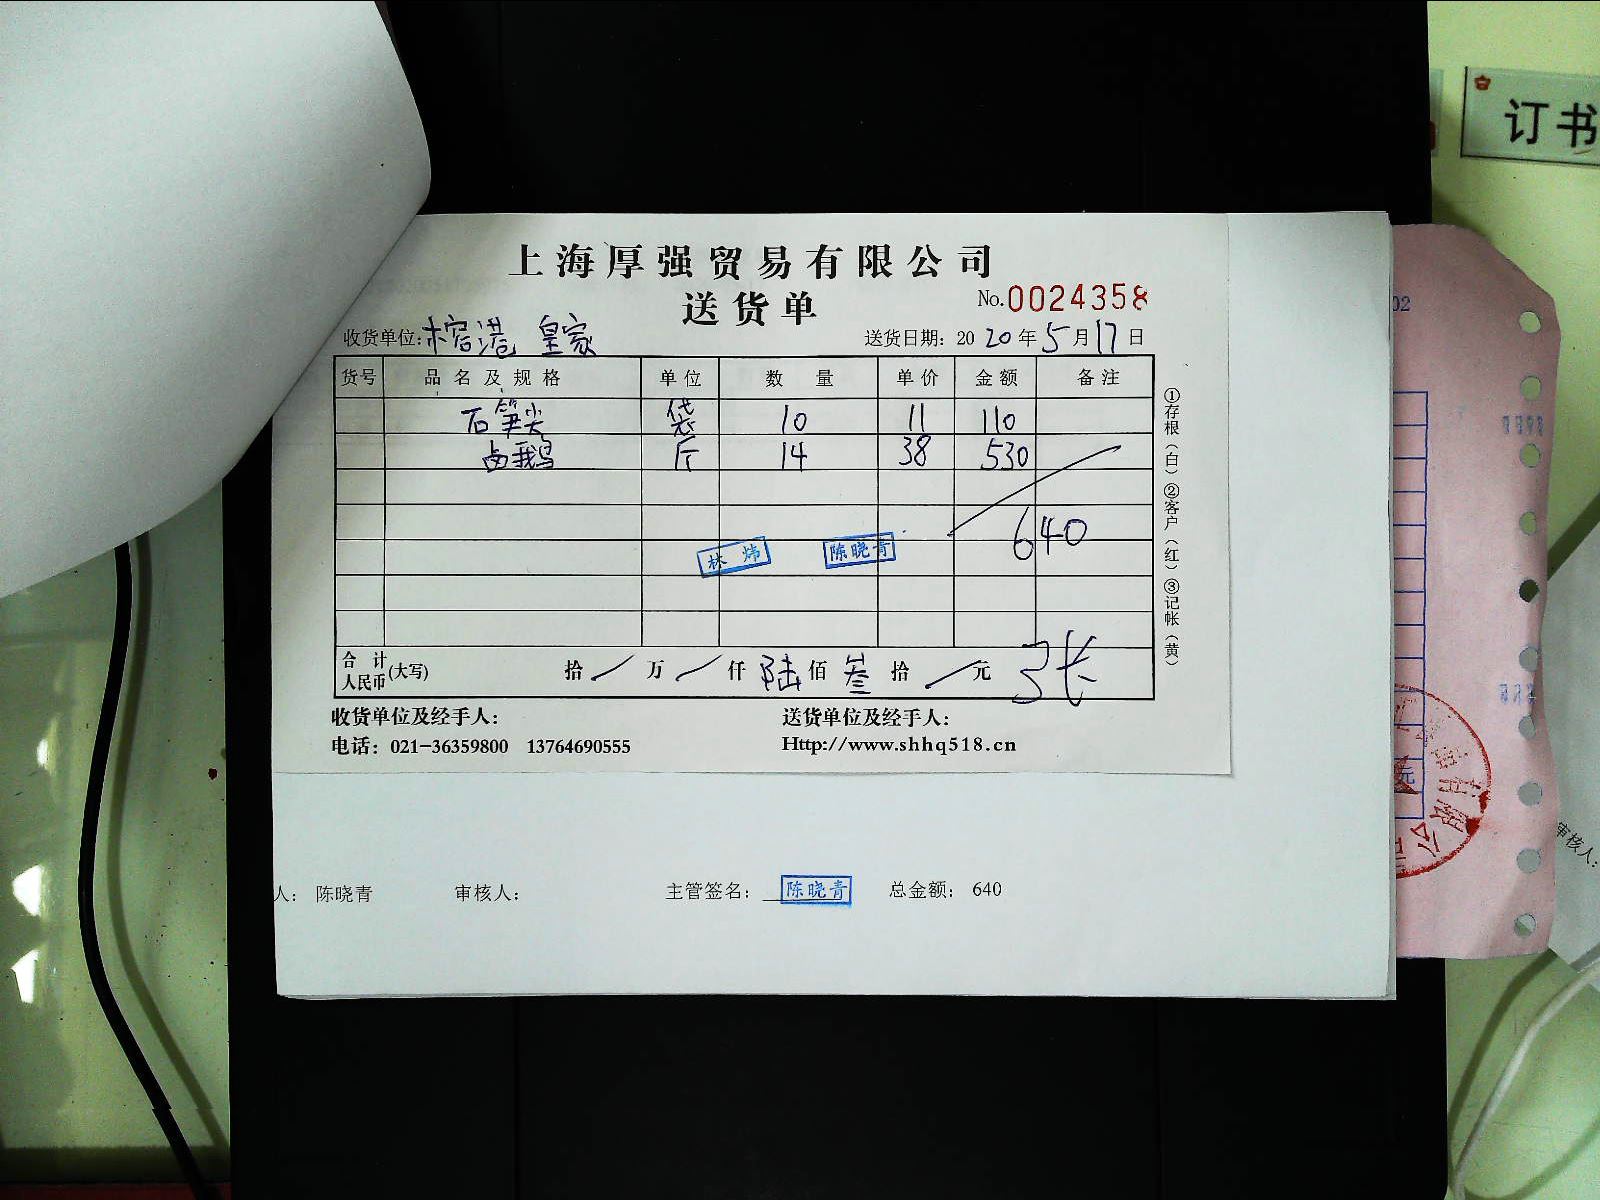 订书
上海厚强贸易有限公司
送货单
No.0024358
收货单位:榕港 皇家
送货日期: 2020年5月17日
货号 品名及规格 单位 数量 单价 金额 备注
石笋尖 袋 10 11 110
卤鹅 斤 14 38 530
640
林炜 陈晓青
合计人民币(大写) 拾 / 万 / 仟 陆 佰 叁 拾 / 元 3张
①存根(白)②客户(红)③记帐(黄)
收货单位及经手人: 送货单位及经手人:
电话: 021-36359800 13764690555 Http://www.shhq518.cn
人: 陈晓青 审核人: 主管签名: 陈晓青 总金额: 640
02
元
有限公司
审核人: